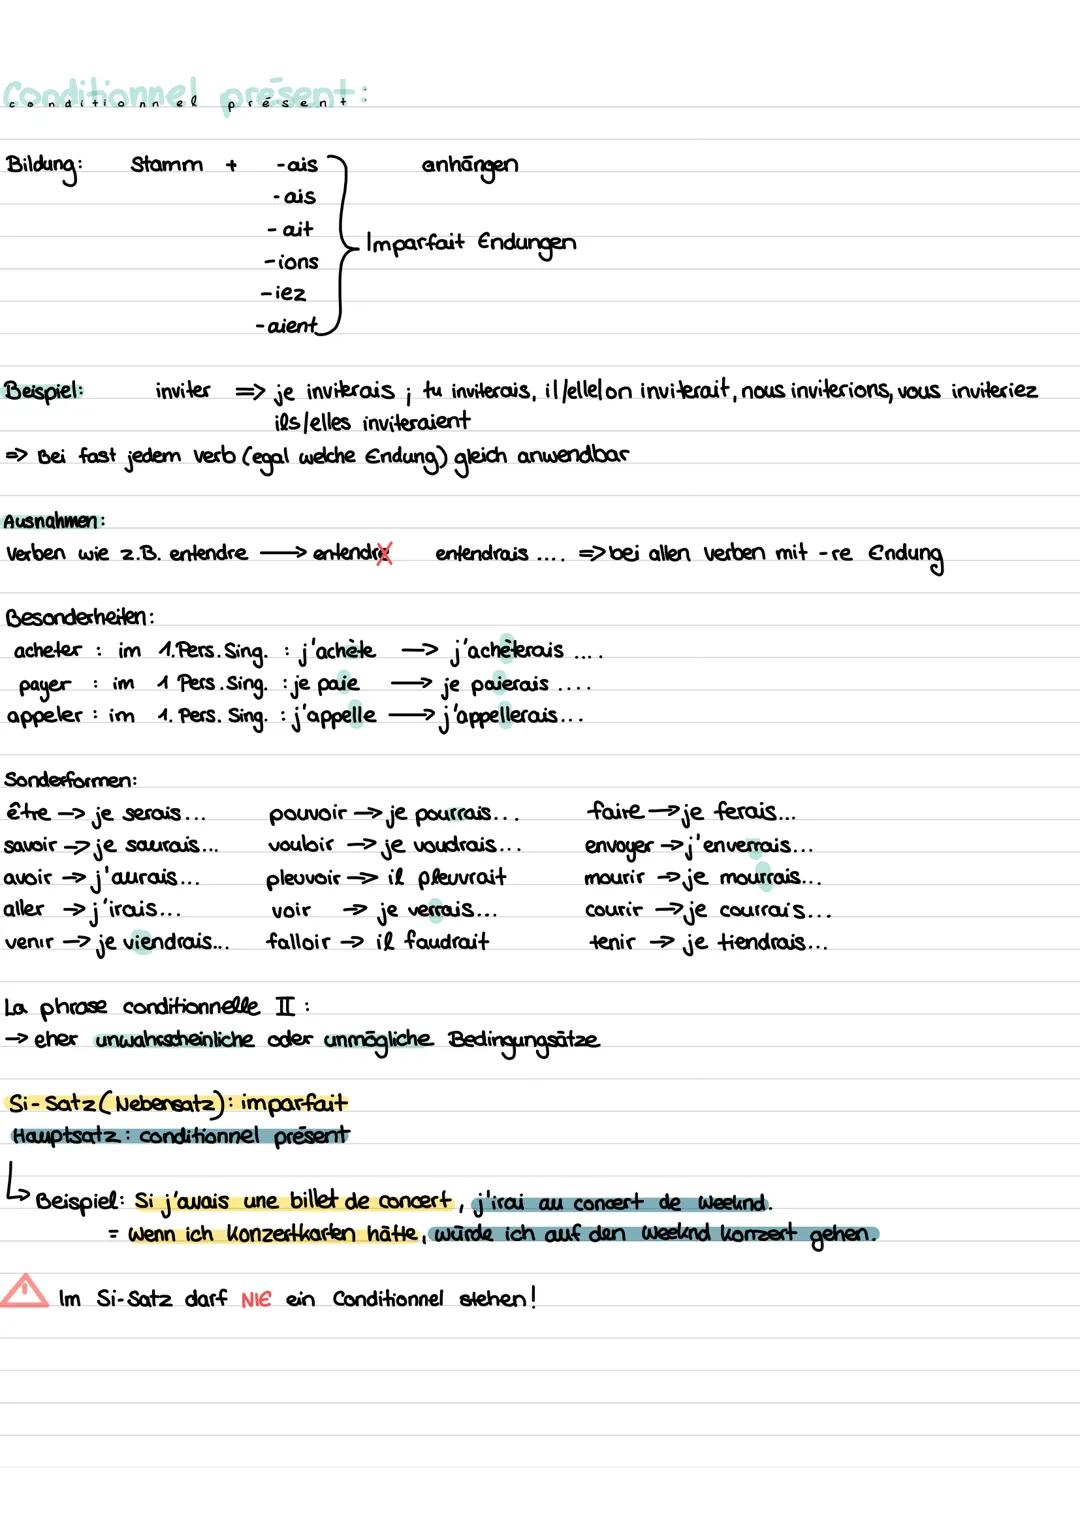 Conditionnel présent:
conditionnel présent
Bildung: Stamm + -ais anhängen
-ais
-ait
Imparfait Endungen
-ions
-iez
-aient
Beispiel: inviter => je inviterais ; tu inviterais, il/elle/on inviterait, nous inviterions, vous inviteriez
ils/elles inviteraient
=> Bei fast jedem Verb (egal welche Endung) gleich anwendbar
Ausnahmen:
Verben wie z.B. entendre → entendre entendrais .... => bei allen Verben mit -re Endung
Besonderheiten:
acheter : im 1.Pers. Sing. : j'achète → j'achèterais ....
payer : im 1 Pers. Sing. : je paie → je paierais ....
appeler : im 1. Pers. Sing. : j'appelle → j'appellerais...
Sonderformen:
être → je serais... pouvoir → je pourrais... faire → je ferais...
savoir → je saurais... vouloir → je voudrais... envoyer → j'enverrais...
avoir → j'aurais... pleuvoir → il pleuvrait mourir → je mourrais...
aller → j'irais... voir → je verrais... courir → je courrais...
venir → je viendrais... falloir → il faudrait tenir → je tiendrais...
La phrase conditionnelle II :
→ eher unwahrscheinliche oder unmögliche Bedingungsätze
Si-Satz (Nebensatz): imparfait
Hauptsatz: conditionnel présent
Beispiel: Si j'avais une billet de concert, j'irai au concert de Weeknd.
= Wenn ich Konzertkarten hätte, würde ich auf den Weeknd Konzert gehen.
! Im Si-Satz darf NIE ein Conditionnel stehen!